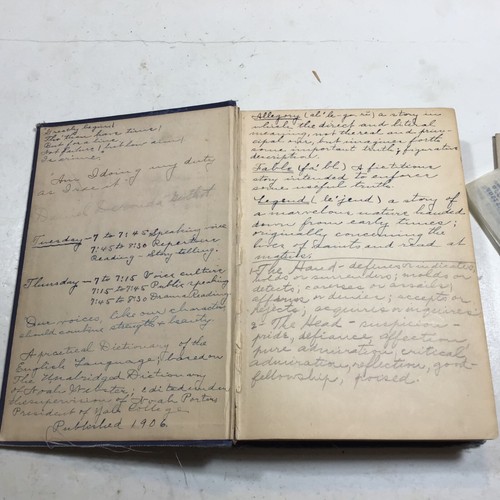 Greatly begin!
Tho thou have time!
But for a line,
Not failure, but low aim,
Is crime.
"Am I doing my duty
as I see it
Tuesday - 7 to 7:45 Speaking voice
7:45 to Repertoire
Reading - Story telling.
Thursday - 7 to 7:15 Voice culture
7:15 to 7:45 Public speaking
7:45 to Drama Reading
Our voices, like our characters
should combine strength & beauty
A practical Dictionary of the
English Language, based on
The Unabridged Dictionary
of Noah Webster, edited under
the supervision of Noah Porter
President of Yale College
Published 1906.
Allegory (al'le-go-ri) a story in
which the direct and literal
meaning is not the real and prin-
cipal one, but images forth
some important truth; figurative
description.
Fable (fa'bl) A fictitious
story intended to enforce
some useful truth.
Legend (le'jend) a story of
a marvelous nature handed
down from early times;
originally
lives of saints and read at
matins.
The Hand - defines or indicates,
or surrenders; molds or
detects; caresses or assails;
affirms or denies; accepts or
rejects; acquires or inquires
2- The Head - suspicion -
pride, defiance, affection,
pure admiration, critical
admiration, reflection, good-
fellowship,